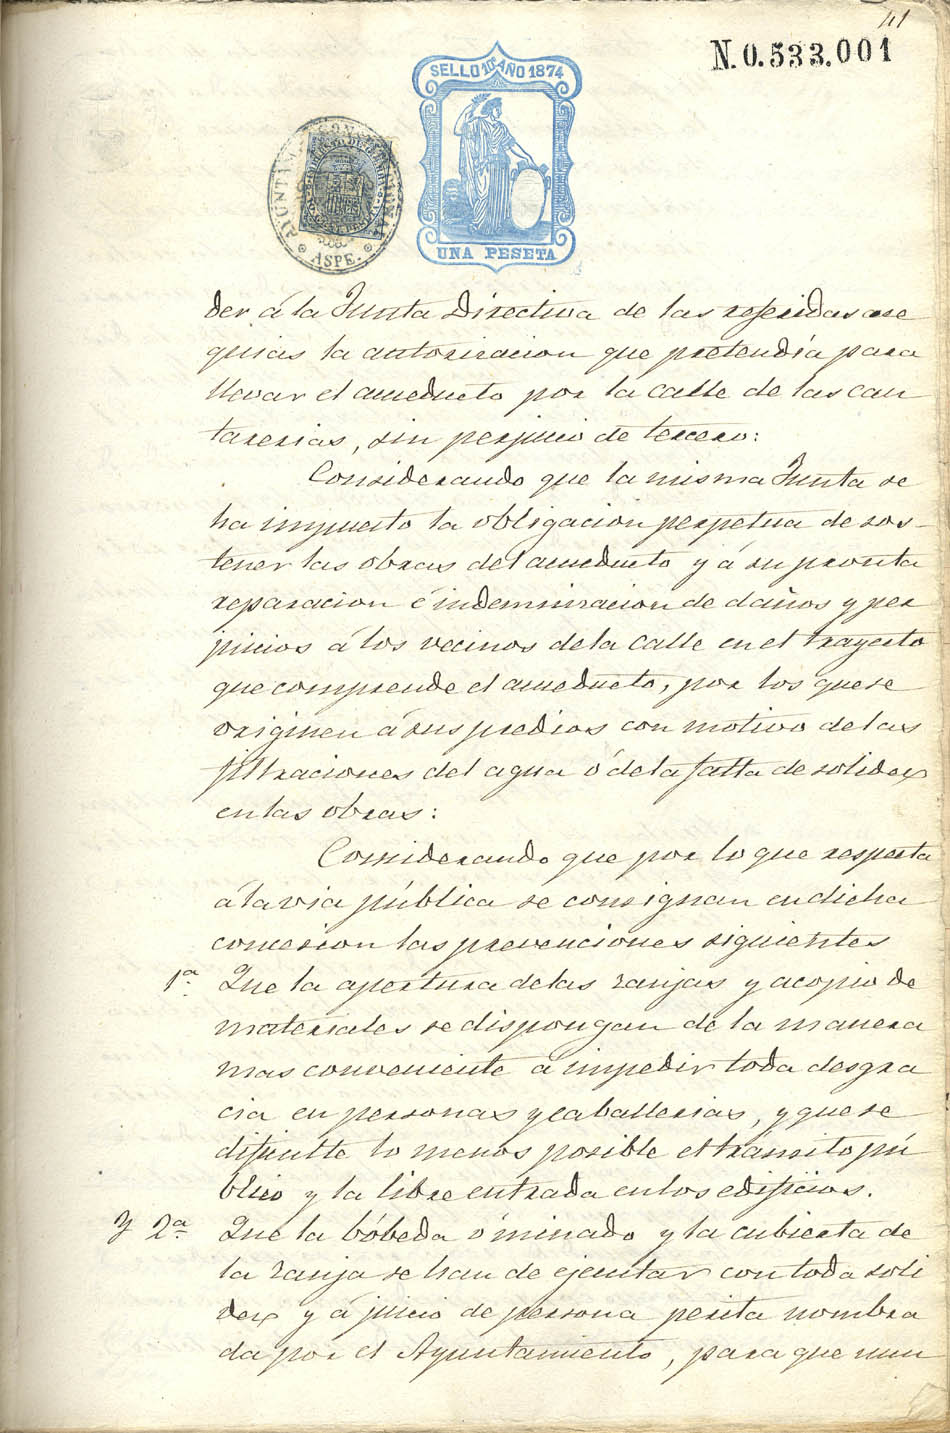 41
N. 0.533.001
SELLO 10º AÑO 1874
UNA PESETA
ASPE.
der á la Junta Directiva de las referidas ace
quias la autorizacion que pretendía para
llevar el acueducto por la calle de las can
tarerias, sin perjuicio de tercero:
Considerando que la misma Junta se
ha impuesto la obligacion perpetua de sos-
tener las obras del acueducto y á su pronta
reparacion é indemnizacion de daños y per
juicios á los vecinos de la calle en el trayecto
que comprende el acueducto, por los que se
originen á sus predios con motivo de las
filtraciones del agua ó de la falta de solidez
en las obras:
Considerando que por lo que respecta
á la via pública se consignan en dicha
concesion las prevenciones siguientes
1ª. Que la apertura de las zanjas y acopio de
materiales se dispongan de la manera
mas conveniente á impedir toda desgra
cia en personas y caballerias, y que se
dificulte lo menos posible el tránsito pú
blico y la libre entrada en los edificios.
Y 2ª. Que la bóbeda ó minado y la cubierta de
la zanja se han de ejecutar con toda soli
dez y á juicio de persona perita nombra
da por el Ayuntamiento, para que nun